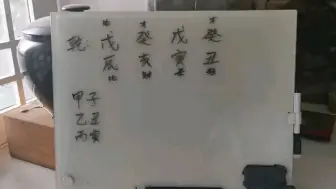 乾: 戊 癸 戊 癸
辰 亥 寅 丑
甲子
乙丑
丙寅